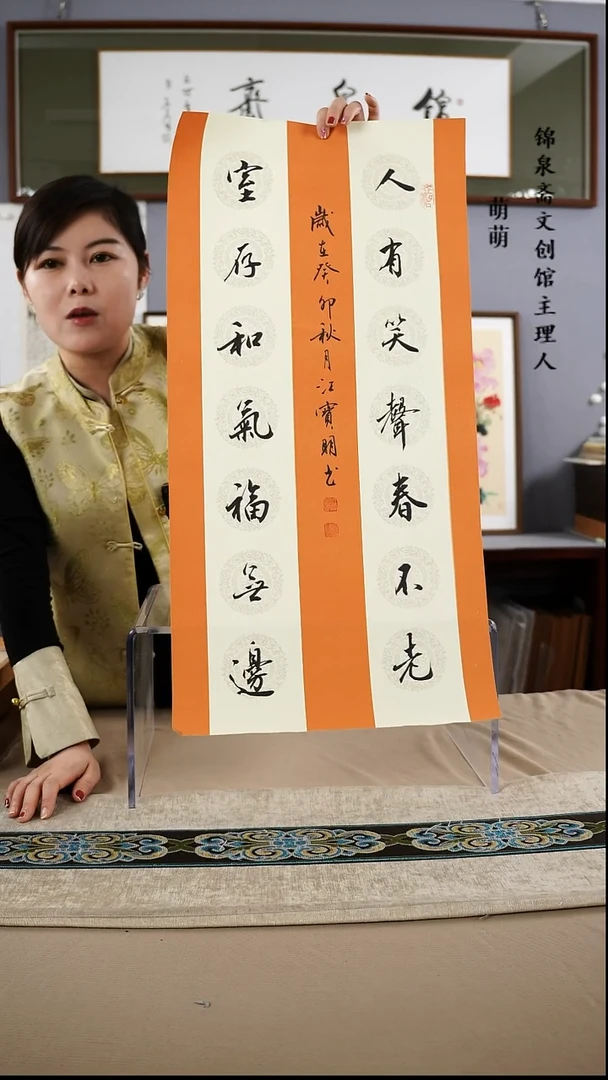 錦泉齋
人有笑聲春不老
歲在癸卯秋月江寶明书
室存和氣福無邊
锦泉斋文创馆主理人
萌萌